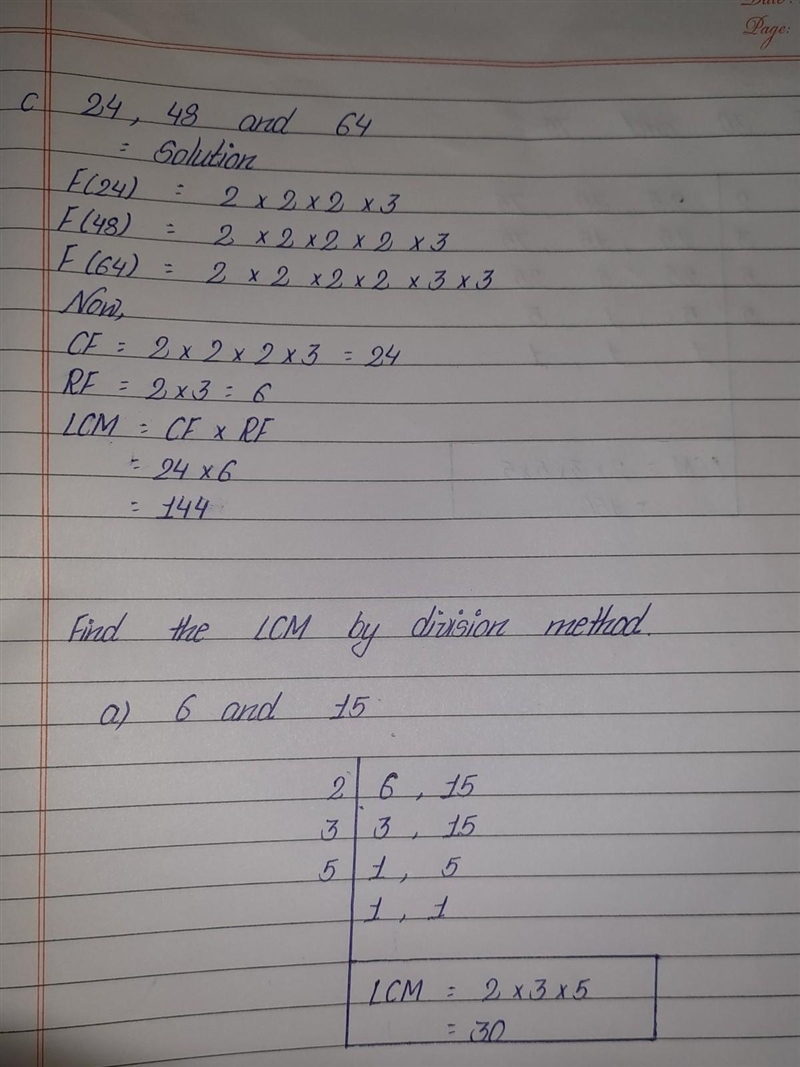 Date:
Page:
C 24, 48 and 64
= Solution
F(24) = 2 × 2 × 2 × 3
F(48) = 2 × 2 × 2 × 2 × 3
F(64) = 2 × 2 × 2 × 2 × 3 × 3
Now,
CF = 2 × 2 × 2 × 3 = 24
RF = 2 × 3 = 6
LCM = CF × RF
= 24 × 6
= 144
Find the LCM by division method.
a) 6 and 15
2 | 6, 15
3 | 3, 15
5 | 1, 5
1, 1
LCM = 2 × 3 × 5
= 30